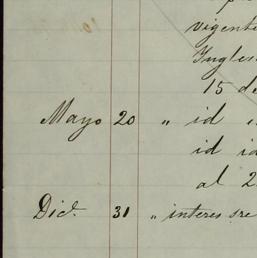 vigent
Ingles
15 de
Mayo 20 " id
id id
al 2
Dic. 31 " interes sre